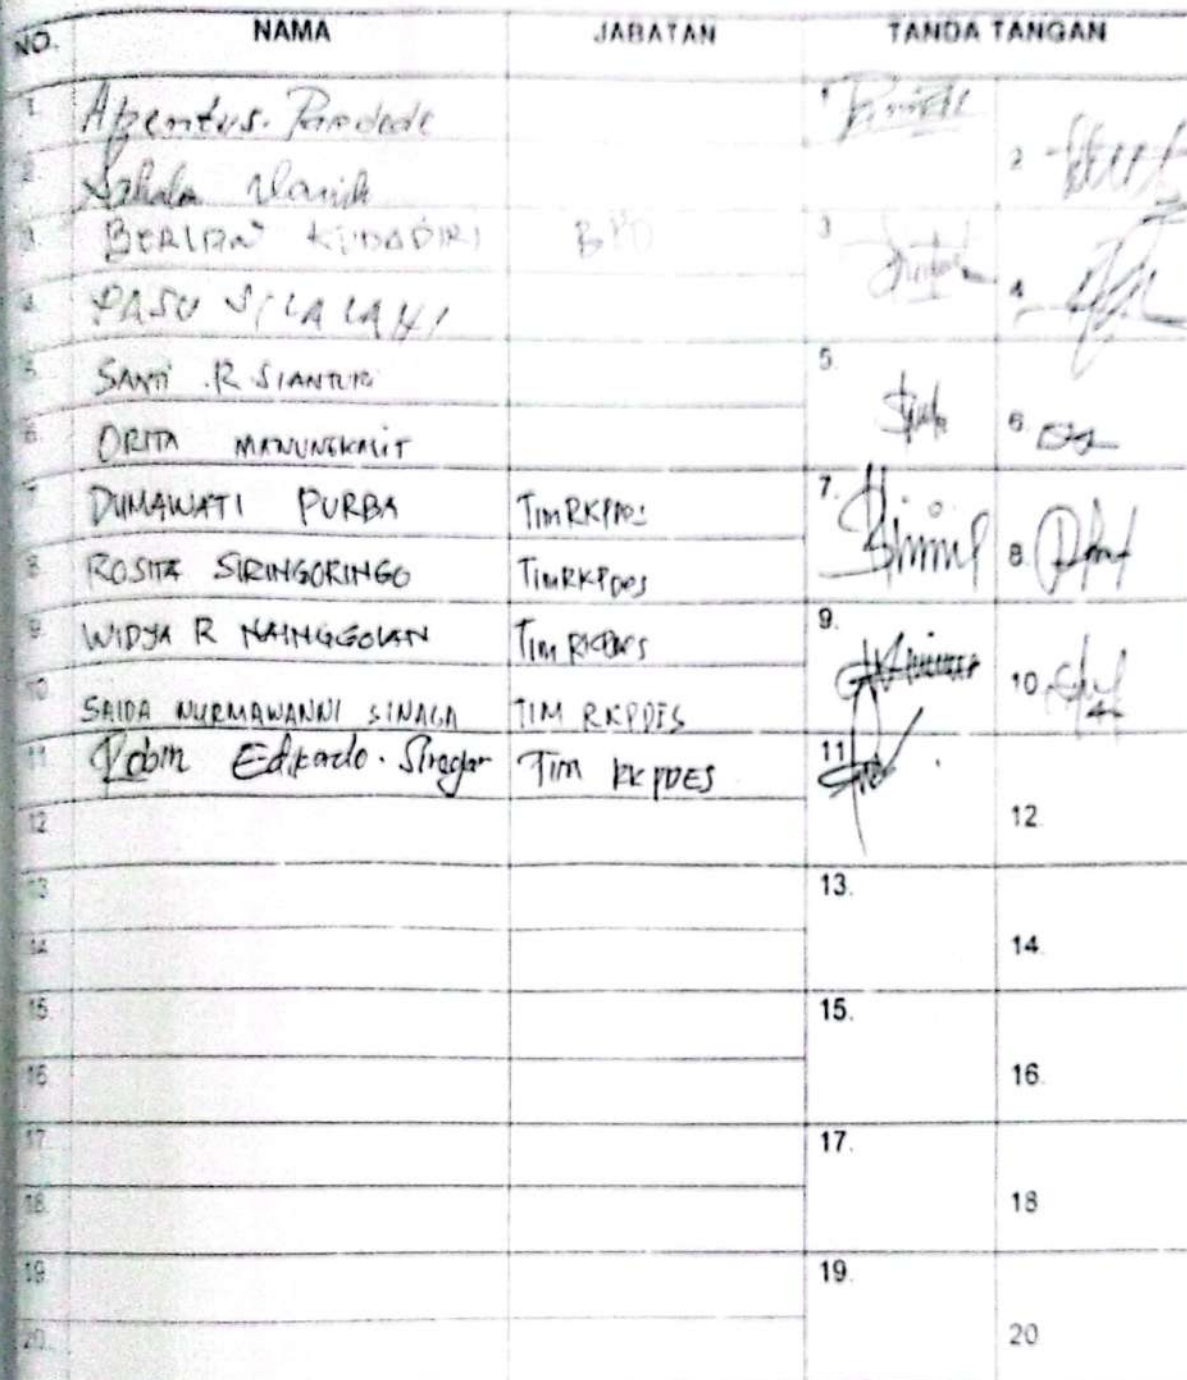 NO. NAMA JABATAN TANDA TANGAN
1. Apentus. Pardede 1.
2. Sahala 2
3. BERLIAN KUDADIRI BPD 3
4. PASU SILALAHI 4
5. SANTI .R SIANTURI 5.
6. ORITA MANUNGKALIT 6.
7 DUMAWATI PURBA TIM RKPDES 7.
8 ROSITA SIRINGORINGO TIM RKPDES 8
9. WIDYA R NAINGGOLAN TIM RKPDES 9.
10 SAIDA NURMAWANNI SINAGA TIM RKPDES 10
11 Robin Edikardo. Siregar Tim RKPDES 11
12 12.
13 13.
14 14.
15. 15.
16 16.
17 17.
18. 18
19 19.
20. 20